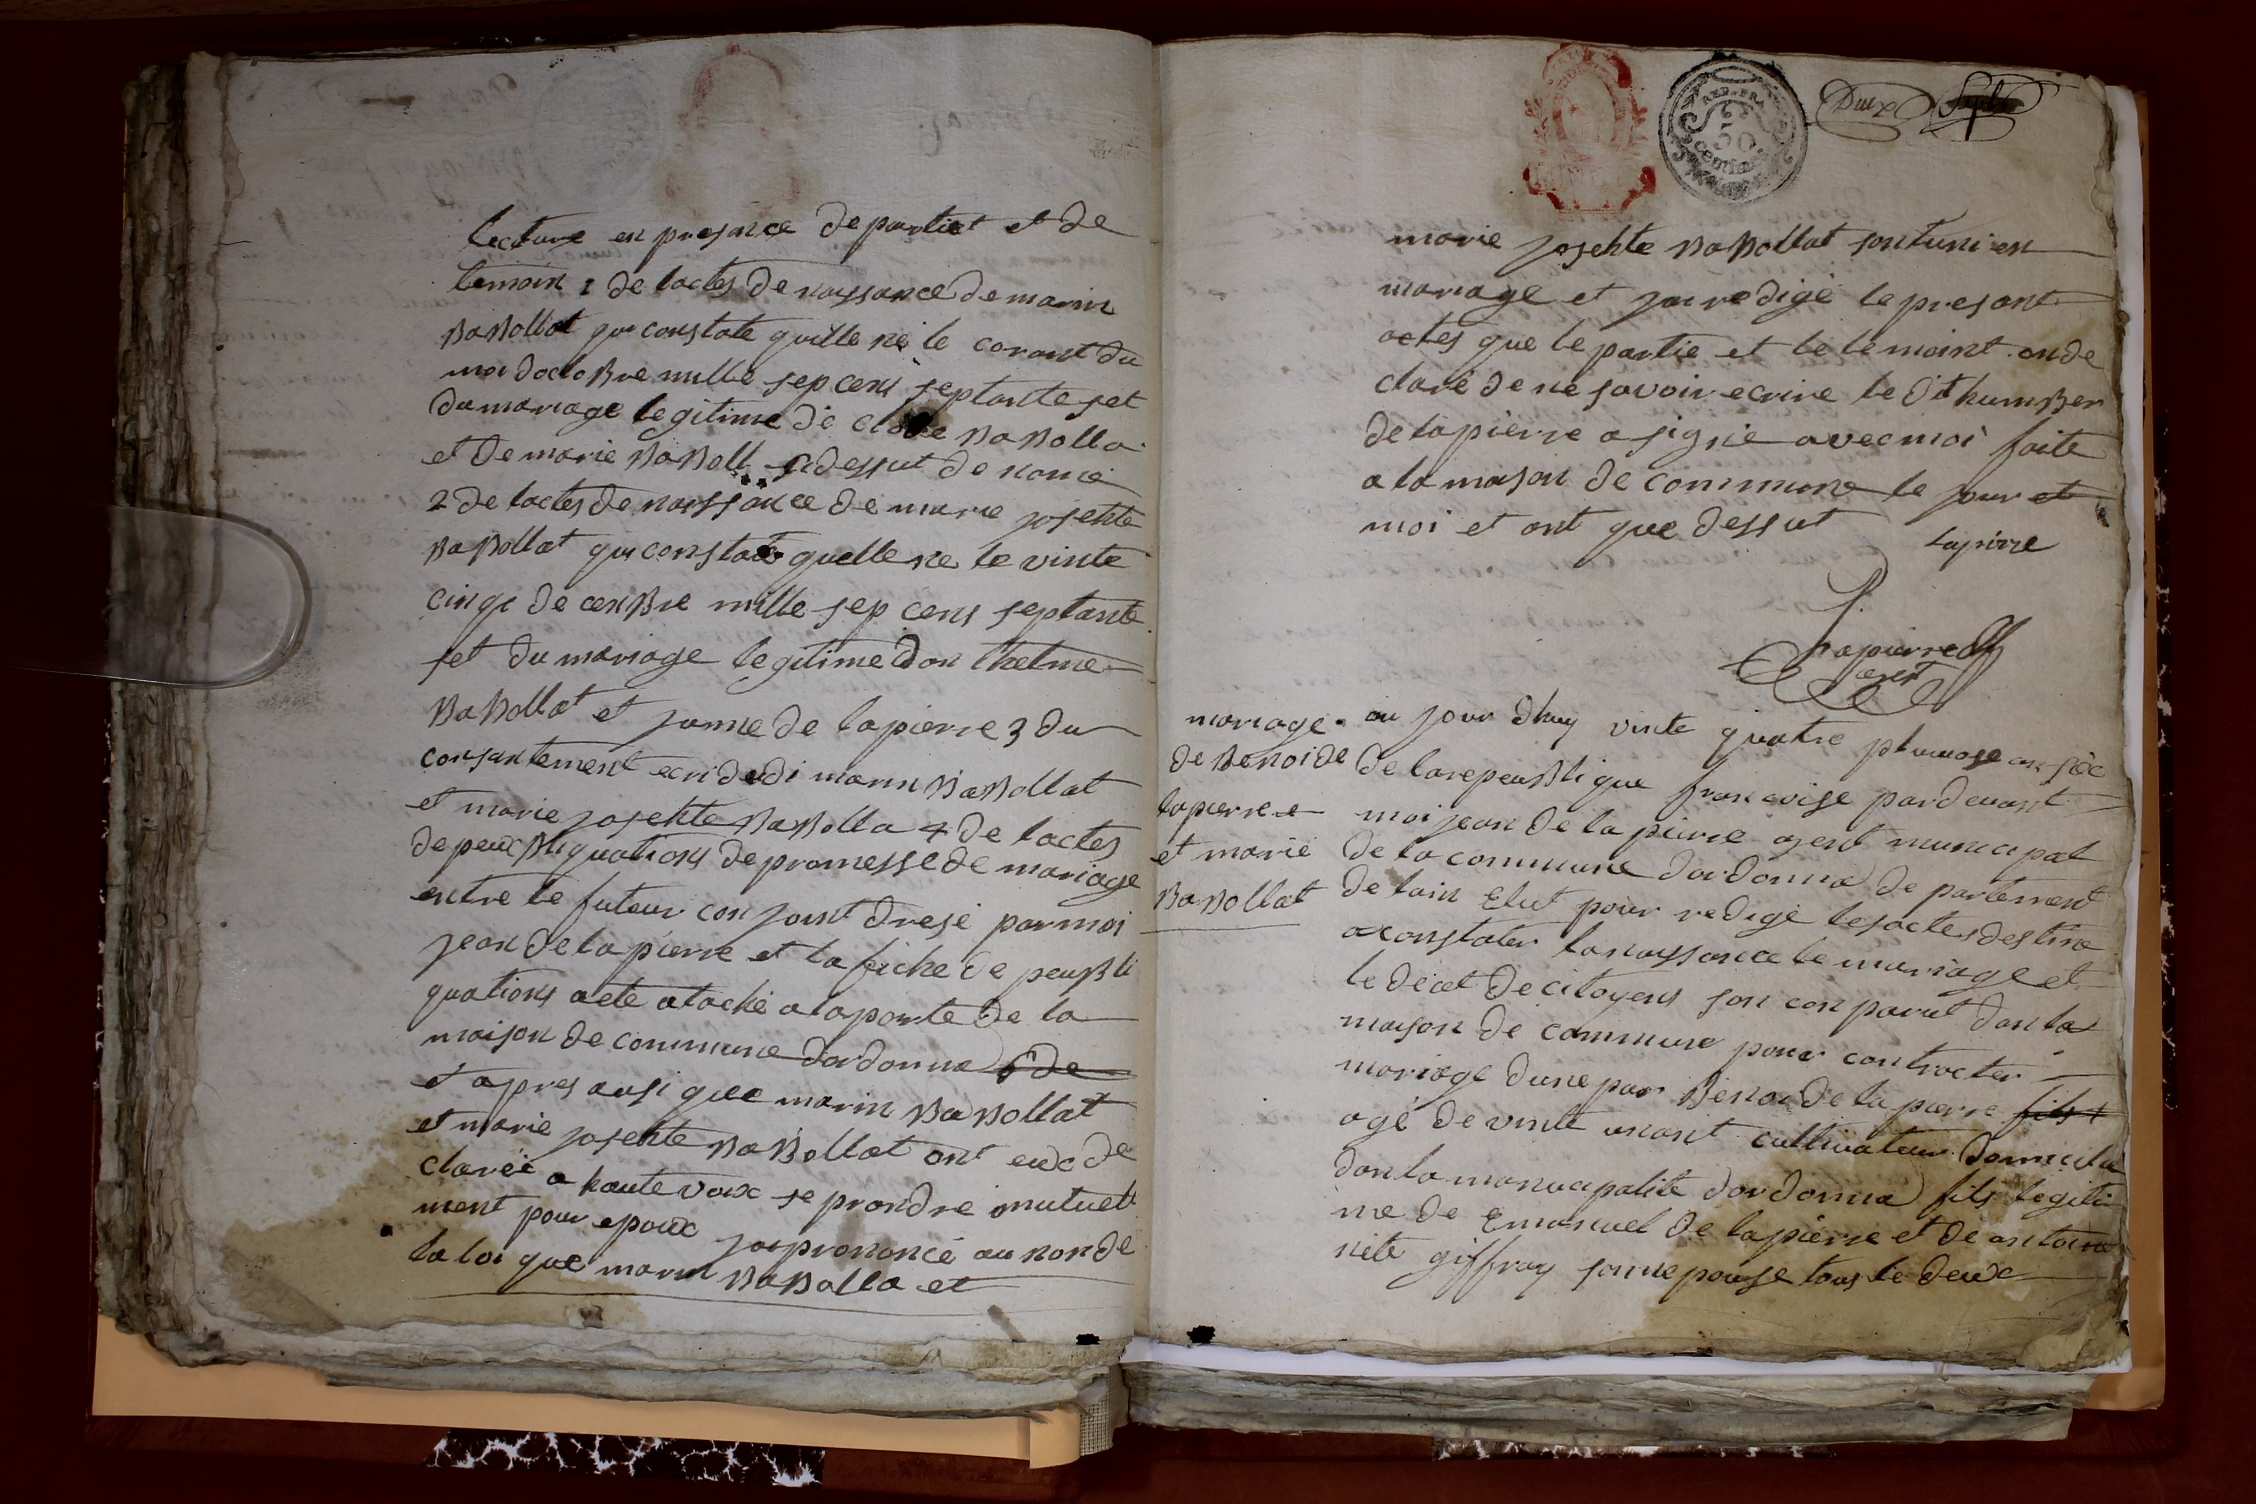 lecture en presance de partiet et de
temoin 1 de lactes de naissance de marin
BaBollat qui constate quille né le corant du
moi doctoBre mille sep cens septante set
du mariage legitime de clode BaBolla
et de marie BaBoll si dessut de nomé
2 de lactes de naissance de marie josehte
BaBollat qui constate quelle ne le vinte
cinqe de cenBre mille sep cens septante
set du mariage legitime don thelme
BaBollat et janne de lapierre 3 du
consantement ecri dudi marin BaBollat
et marie josehte BaBolla 4 de lactes
de peuBliquations de promesse de mariage
entre le futeur conjoint dresé par moi
jean de lapierre et la fiche de peuBli
quations a ete ataché a la porte de la
maison de commune dordonna
et apres ausi que marin BaBollat
et marie josehte BaBollat ont eux de
claréé a haute voix se prandre mutuell
ment pour epoux jai prononcé au non de
la loi que marin BaBolla et
REP. FRA
50
centim
Deux Septe
marie josehte BaBollat sont uni en
mariage et jai redigé le presant
actes que le partie et le temoint on de
claré de ne savoir ecrire le dit humBer
de lapierre a signé avec moi faite
a la maison de commune le jour et
moi et ant que dessut
lapierre
Lapierre
agent
mariage
de Benoi de
lapierre
et marie
BaBollat
au jour dhuy vinte quatre pluviose an siec
de la repeuBlique francoise pardevant
moi jean de la pierre agent municipal
de la commune dordonna de partement
de lain Elut pour redigé les actes destine
a constater la naissance le mariage et
le décet de citoyens son conparut dan la
maison de commune pour contracter
mariage dune par Benoi de la pierre fils
agé de vint unant cultivateur domicilie
dan la manucipalité dordonna fils legiti
me de Emanuel de lapierre et de antoine
nete giffray sonne pouse tous le deux